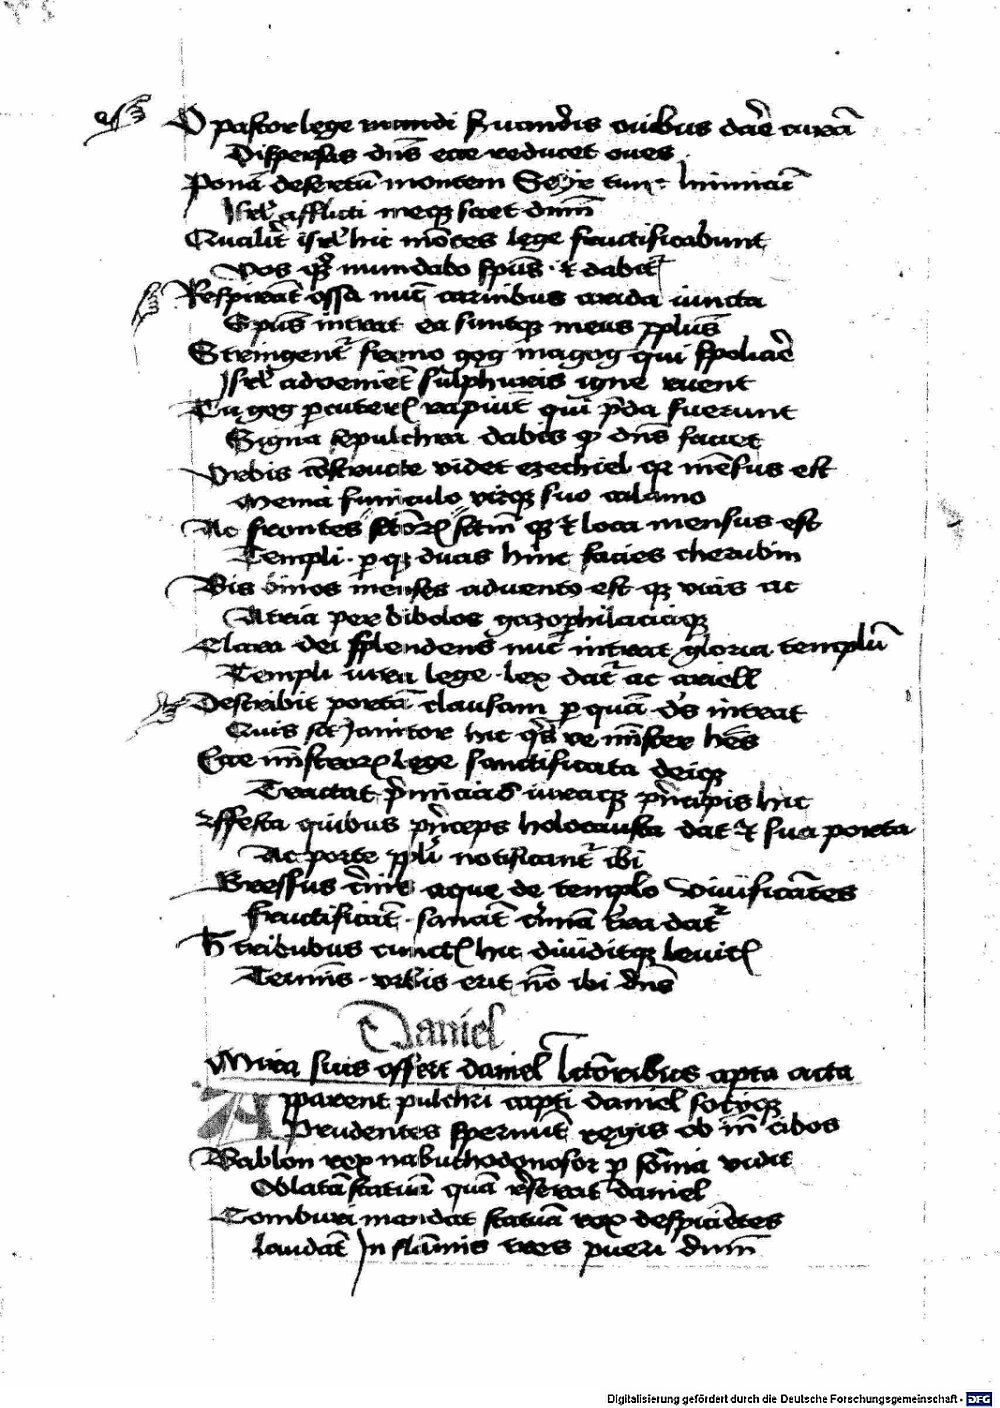 O pastor lege mundi servandis ovibus dare curã
Dispersas dns ecce reducet oves
Ponã desertũ montem Seyr inimicãt
Isrl afflicti meq sciet dnm
isrl hic mõtes lege fructificabunt
Vos q mundabo spũs et dabit
Respirant ossa nũc carnibus arida iuncta
Spũs intrat ea suntq meus pplus
Stringent freno gog magog qui spoliare
Isrl advenient sulphuris igne ruent
Tu gog rapiũt qui pda fuerunt
Signa sepulchra dabis dns faciet
Urbis videt ezechiel q mensus est
Menia funiculo suo calamo
Ac frontes q et loca mensus est
Templi hinc facies cherubim
Bis binos menses advento est q vias ac
Atria per bibolos gazophilaciaq
Clara dei splendens nũc intrat gloria templũ
Templi iura lege lex dat ac ariell
Describit portã clausam p quã ds intrat
Quis sit Janitor hic
Ecce lege sanctificata deiq
Tractat primicias iuraq principis hic
Effesta quibus princeps holocausta dat et sua porta
Ac porte ppli notificant ibi
Gressus aque de templo vivificãtes
Fructificãt sanãt
H tribubus hic dividitq levit
Terminis urbis erit nõ ibi dns
Daniel
Mira suis offert daniel lectoribus apta acta
Apparent pulchri capti daniel sociiq
Prudentes spernũt regis cibos
Bablon rex nabuchodonosor p sõnia vidit
Oblatã statuã quã reserat daniel
Comburi mandat statuã rex despiciẽtes
Laudãt In flãmis tres pueri dnm
Digitalisierung gefördert durch die Deutsche Forschungsgemeinschaft - DFG